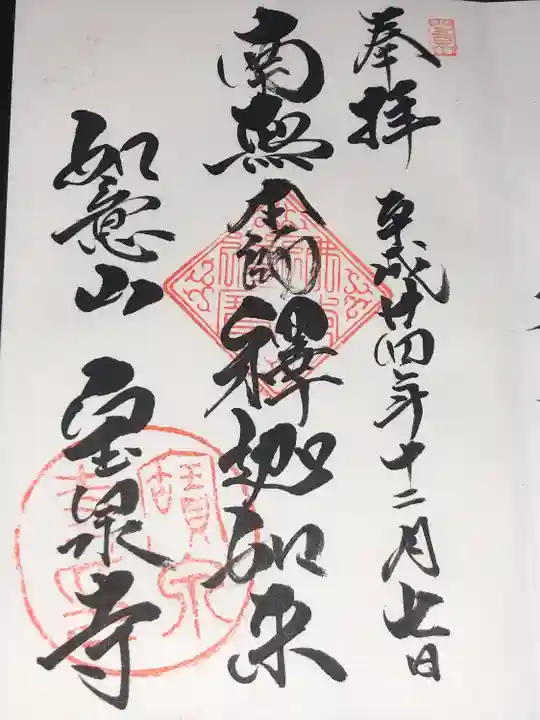 奉拝
平成廿四年十二月七日
南無本師釋迦如来
如意山 宝泉寺